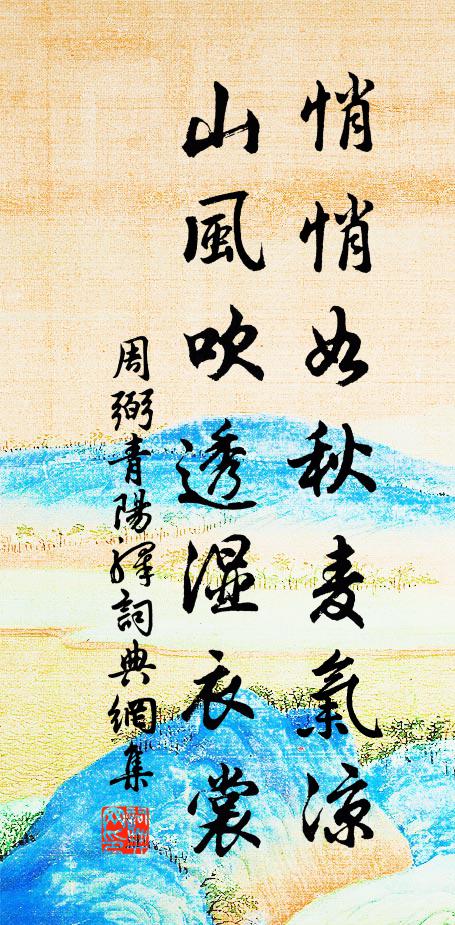 悄悄如秋麦氣涼
山風吹透濕衣裳
周弼青陽驛詞典網集